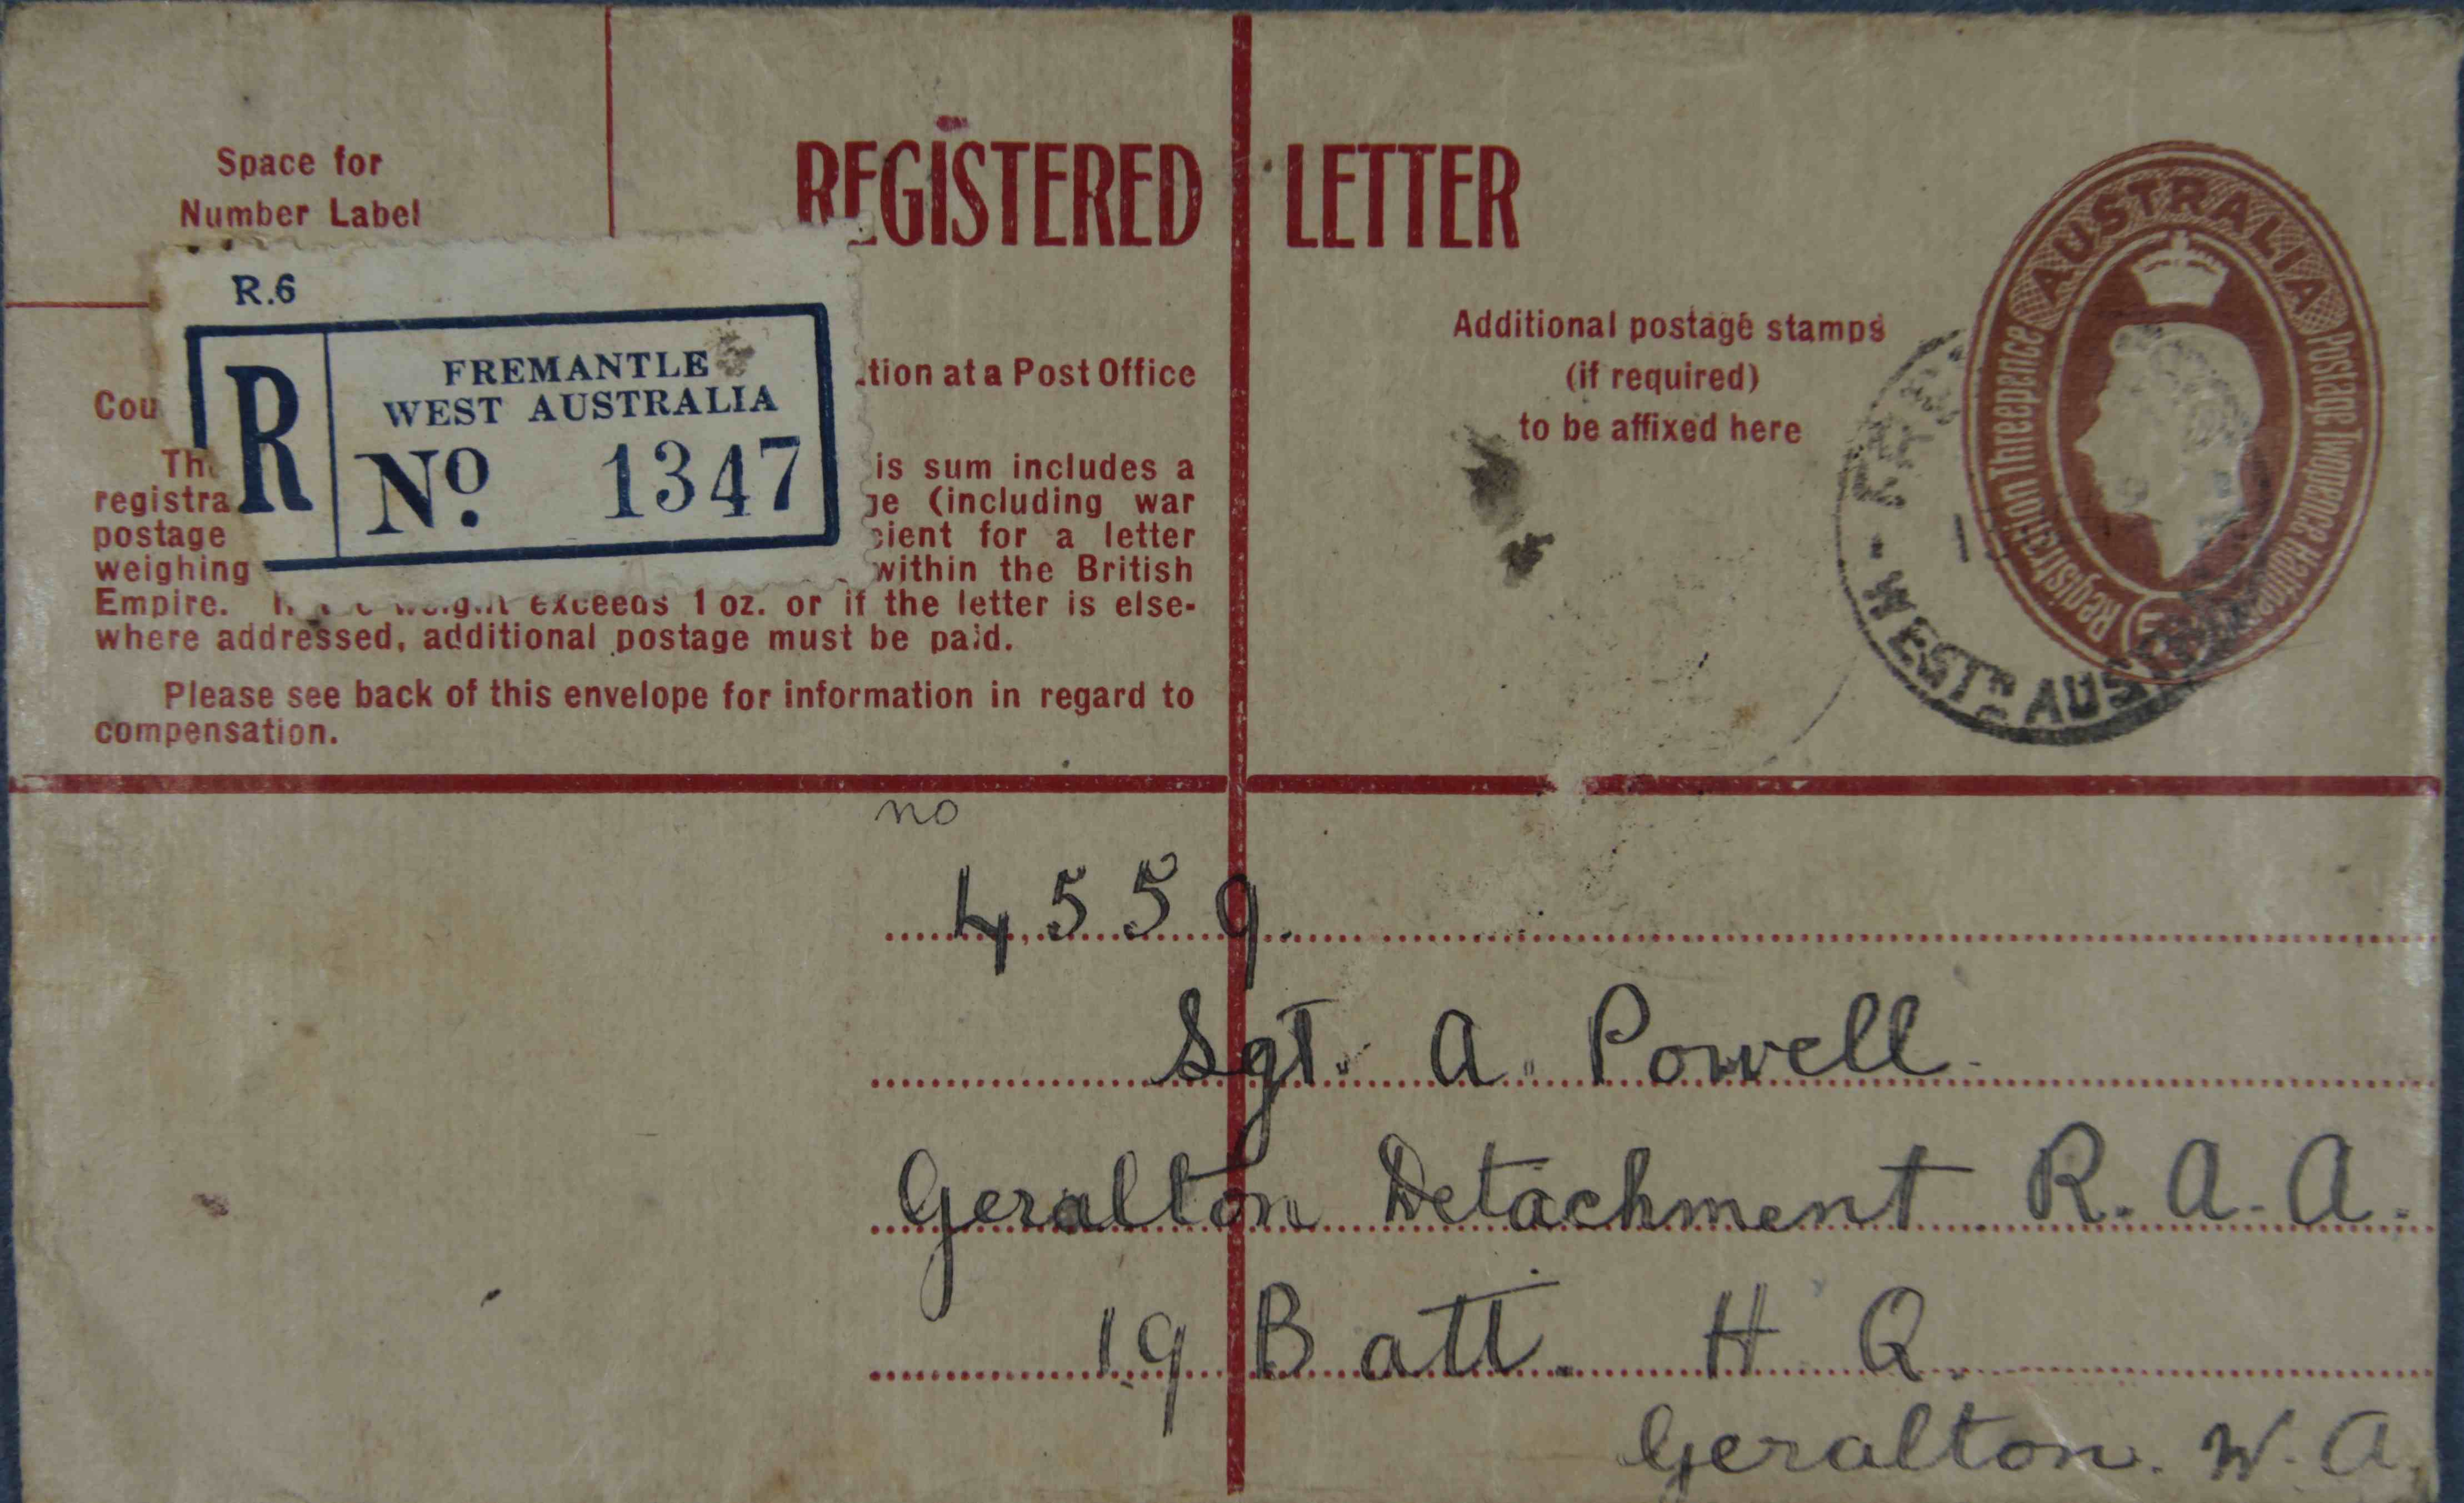 Space for
Number Label
REGISTERED LETTER
R.6
R
FREMANTLE
WEST AUSTRALIA
No. 1347
at a Post Office
is sum includes a
(including war
postage for a letter
weighing within the British
Empire. exceeds 1 oz. or if the letter is else-
where addressed, additional postage must be paid.
Please see back of this envelope for information in regard to
compensation.
Additional postage stamps
(if required)
to be affixed here
AUSTRALIA
Registration Threepence
Postage Twopence Halfpenny
WESTN AUST
no
4559.
Sgt. A. Powell.
Geralton Detachment R.A.A.
19 Batt. H Q.
Geralton. W.A.